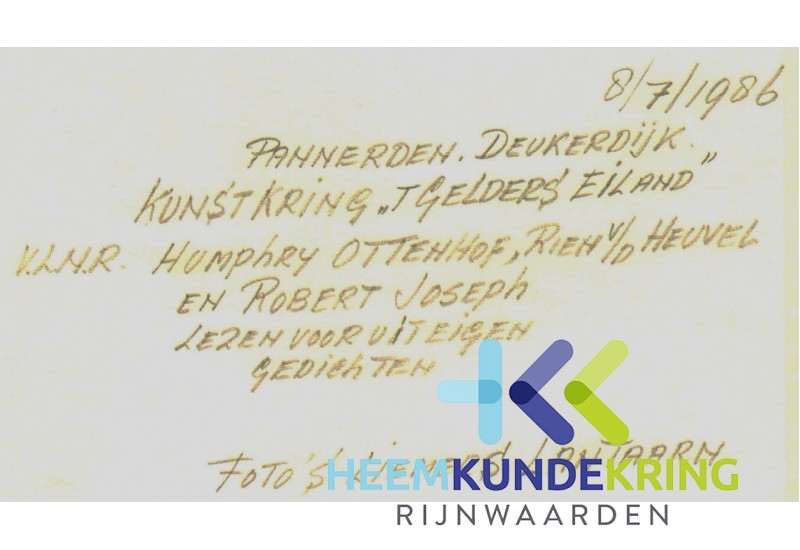 8/7/1986
PANNERDEN. DEUKERDIJK.
KUNSTKRING „T GELDERS EILAND”
V.L.N.R. HUMPhRY OTTENHOF, RIEN V/D HEUVEL
EN ROBERT JOSEPh
LEZEN VOOR UIT EIGEN
GEDIChTEN
FOTO'S LIEMERS LANTAARN
HEEMKUNDEKRING
RIJNWAARDEN